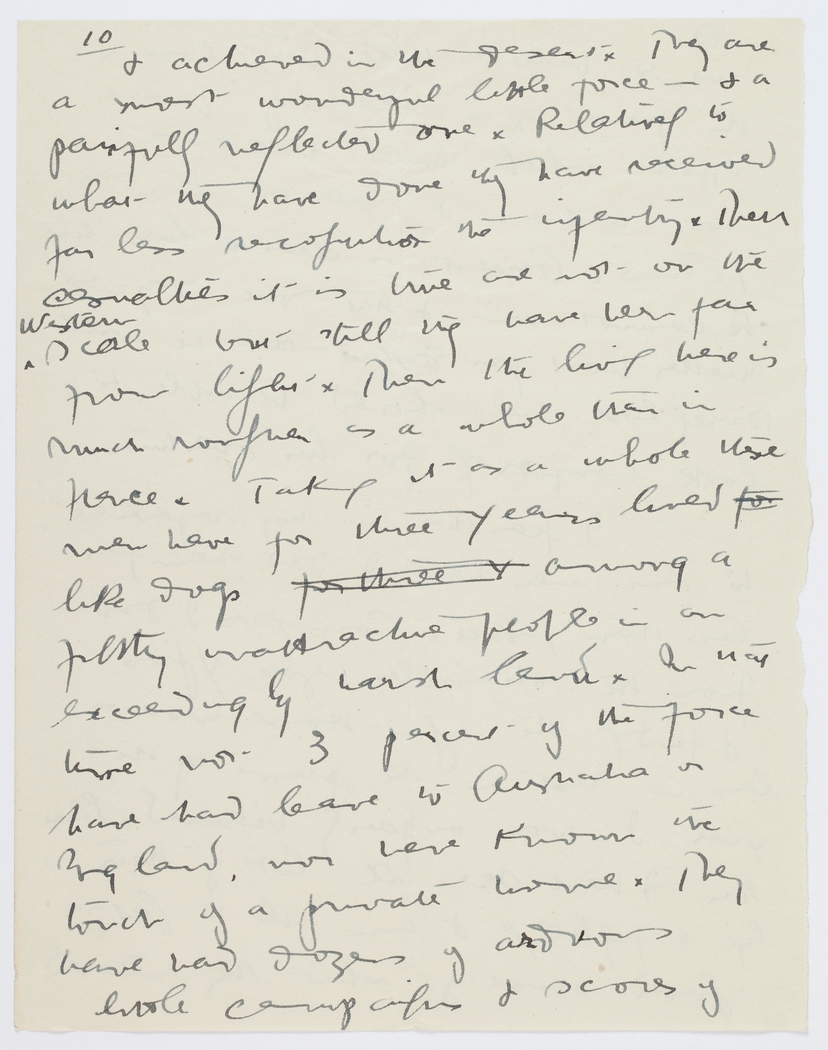 10
& achieved in the desert x They are
a most wonderful little force — & a
painfully neglected one x Relatively to
what they have done they have received
far less recognition than infantry x Their
casualties it is true are not on the
Western
^ scale but still they have been far
from light x Then the living here is
much rougher as a whole than in
France x Taking it as a whole these
men have for three years lived for
like dogs for three y among a
filthy unattractive people in an
exceedingly harsh land x In that
time not 3 percent of the force
have had leave to Australia or
England, nor have known the
touch of a private home x They
have had dozens of arduous
little campaigns & scores of